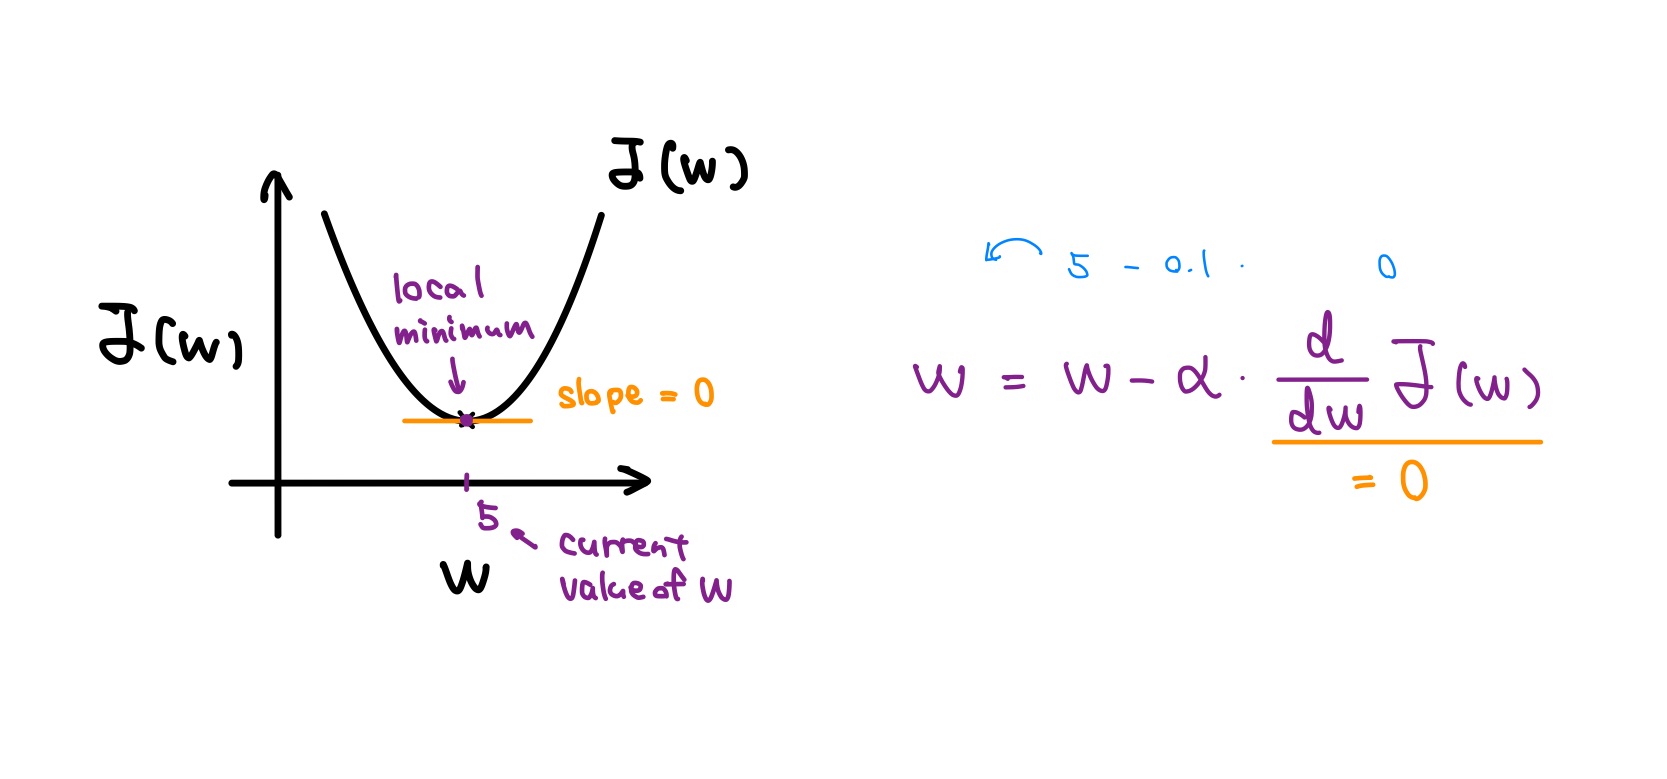 J(w)
J(w)
local
minimum
slope = 0
5
current
value of w
w
5 - 0.1 · 0
w = w - α · d/dw J(w)
= 0